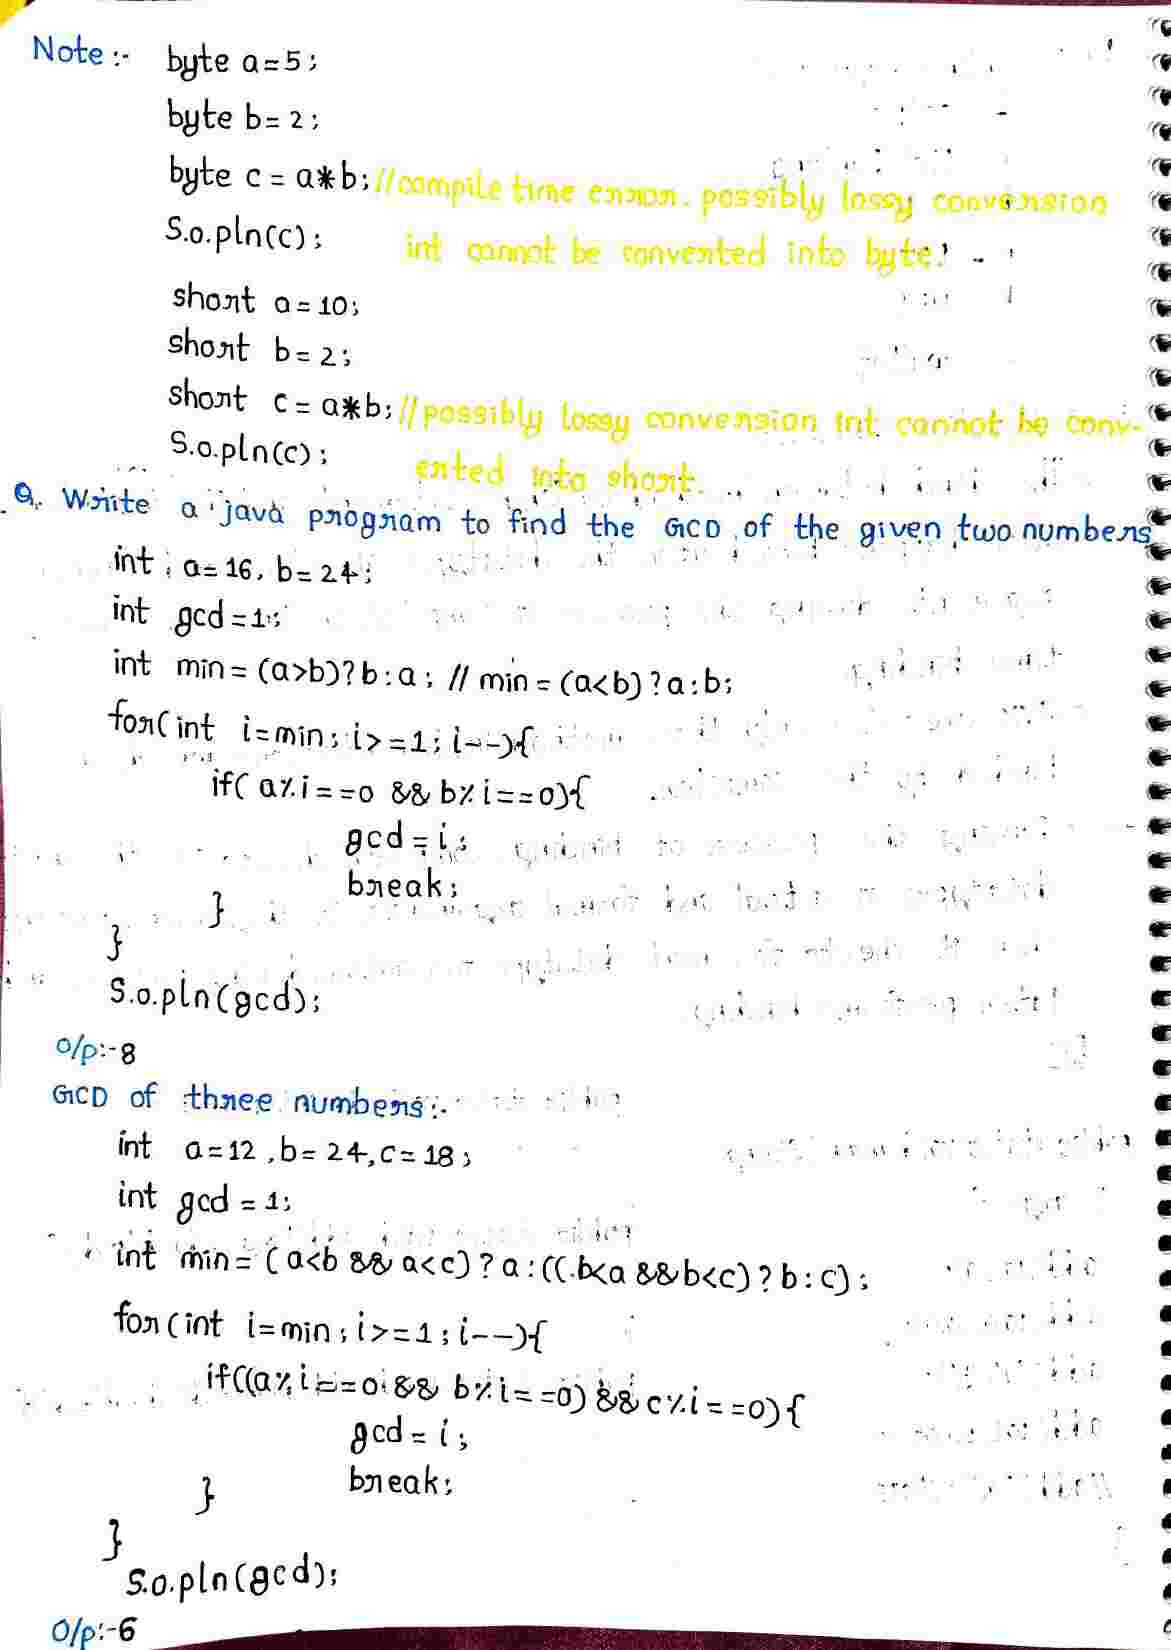 Note :- byte a=5;
byte b= 2;
byte c = a*b; //compile time error. possibly lossy conversion
S.o.pln(c); int cannot be converted into byte.
short a=10;
short b=2;
short c= a*b; //possibly lossy conversion int cannot be conv-
S.o.pln(c); erted into short.
Q. Write a java program to find the GCD of the given two numbers
int a=16, b=24;
int gcd=1;
int min = (a>b)?b:a; // min = (a<b)?a:b;
for(int i=min; i>=1; i--){
if( a%i==0 && b%i==0){
gcd=i;
break;
}
}
S.o.pln(gcd);
O/p:-8
GCD of three numbers:-
int a=12, b=24, c=18;
int gcd = 1;
int min= (a<b && a<c)?a:((b<a && b<c)?b:c);
for(int i=min; i>=1; i--){
if((a%i==0 && b%i==0) && c%i==0){
gcd = i;
break;
}
}
S.o.pln(gcd);
O/p:-6